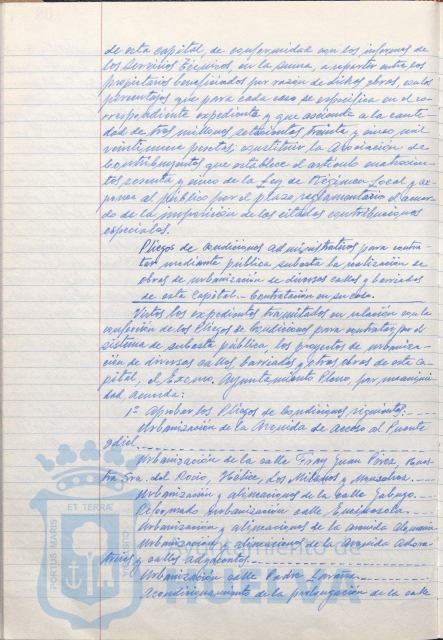 de esta capital, de conformidad con los informes de
los Servicios Técnicos, en la suma, a repartir entre los
propietarios beneficiados por razón de dichas obras, en los
porcentajes que para cada caso se especifica en el co-
rrespondiente expediente y que asciende a la canti-
dad de tres millones setecientas treinta y cinco mil
veintinueve pesetas; constituir la Asociación de
Contribuyentes que establece el artículo cuatrocien-
tos sesenta y cinco de la Ley de Régimen Local y ex-
poner al público por el plazo reglamentario el acuer-
do de la imposición de las citadas contribuciones
especiales.
Pliegos de Condiciones Administrativas para contra-
tar mediante pública subasta la realización de
obras de urbanización de diversas calles y barriadas
de esta Capital.- Contratación en su caso.
Vistos los expedientes tramitados en relación con la
confección de los Pliegos de Condiciones para contratar por el
sistema de subasta pública, los proyectos de urbaniza-
ción de diversas calles, barriadas y otras obras de esta Ca-
pital, el Excmo. Ayuntamiento Pleno, por unanimi-
dad acuerda:
1º Aprobar los Pliegos de Condiciones siguientes:
Urbanización de la Avenida de acceso al Puente
Odiel
Urbanización de la calle Fray Juan Pérez, Nues-
tra Sra. del Rocío, Niebla, Los Milanos y
Urbanización y alineaciones de la calle Jabugo.
Reformado Urbanización calle
Urbanización y alineaciones de la avenida Alemania
Urbanización y alineaciones de la Avenida Adora-
trices y calles adyacentes.
Urbanización calle Padre Laraña.
Acondicionamiento de la prolongación de la calle
PORTUS MARIS ET TERRAE CUSTODIA
Ayuntamiento de
HUELVA